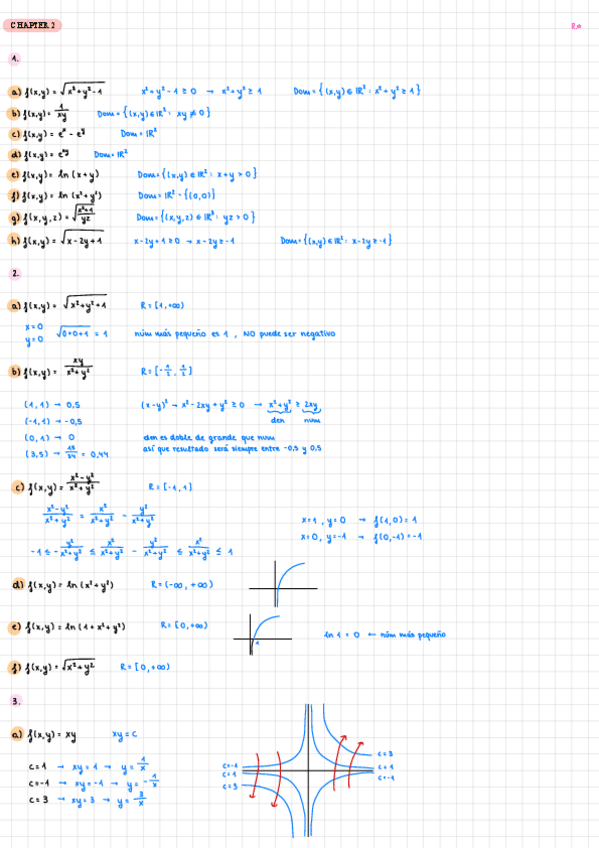 CHAPTER 2
1.
a) f(x,y) = √(x²+y²-1) x²+y²-1 ≥ 0 → x²+y² ≥ 1 Dom = {(x,y) ∈ ℝ² : x²+y² ≥ 1}
b) f(x,y) = 1/xy Dom = {(x,y) ∈ ℝ² : xy ≠ 0}
c) f(x,y) = eˣ - eʸ Dom = ℝ²
d) f(x,y) = eˣʸ Dom = ℝ²
e) f(x,y) = ln (x+y) Dom = {(x,y) ∈ ℝ² : x+y > 0}
f) f(x,y) = ln (x²+y²) Dom = ℝ² - {(0,0)}
g) f(x,y,z) = √((x²+1)/yz) Dom = {(x,y,z) ∈ ℝ³ : yz > 0}
h) f(x,y) = √(x-2y+1) x-2y+1 ≥ 0 → x-2y ≥ -1 Dom = {(x,y) ∈ ℝ² : x-2y ≥ -1}
2.
a) f(x,y) = √(x²+y²+1) R = [1,+∞)
x=0
y=0 √(0+0+1) = 1 núm más pequeño es 1 , NO puede ser negativo
b) f(x,y) = xy/(x²+y²) R = [-1/2, 1/2]
(1,1) → 0,5 (x-y)² → x²-2xy+y² ≥ 0 → x²+y² ≥ 2xy
(-1,1) → -0,5 den num
(0,1) → 0 den es doble de grande que num
(3,5) → 15/34 = 0,44 así que resultado será siempre entre -0,5 y 0,5
c) f(x,y) = (x²-y²)/(x²+y²) R = [-1,1]
(x²-y²)/(x²+y²) = x²/(x²+y²) - y²/(x²+y²) x=1, y=0 → f(1,0) = 1
x=0, y=-1 → f(0,-1) = -1
-1 ≤ - y²/(x²+y²) ≤ x²/(x²+y²) - y²/(x²+y²) ≤ x²/(x²+y²) ≤ 1
d) f(x,y) = ln (x²+y²) R = (-∞, +∞)
e) f(x,y) = ln (1+x²+y²) R = [0,+∞) ln 1 = 0 ← núm más pequeño
f) f(x,y) = √(x²+y²) R = [0,+∞)
3.
a) f(x,y) = xy xy = c
c=1 → xy=1 → y = 1/x
c=-1 → xy=-1 → y = -1/x
c=3 → xy=3 → y = 3/x
c=-1
c=1
c=3
c=3
c=1
c=-1